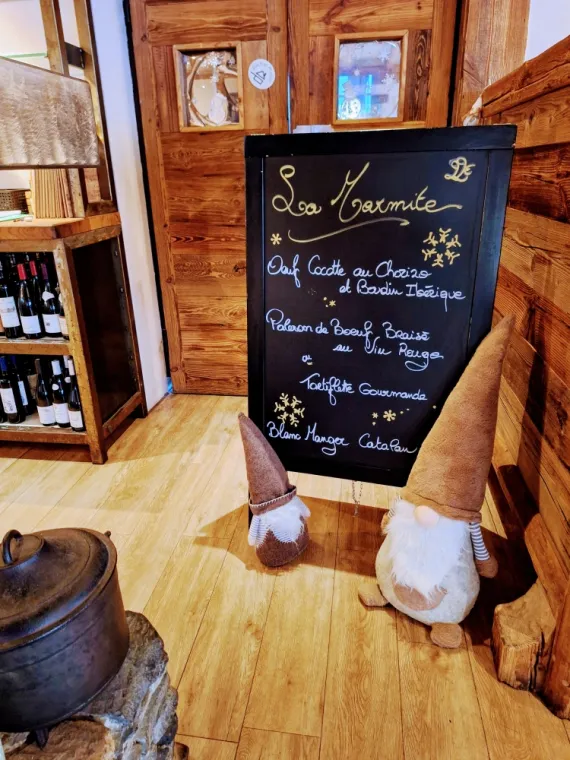 La Marmite
Oeuf Cocotte au Chorizo
et Boudin Ibérique
Paleron de Boeuf Braisé
au Vin Rouge
ou
Tartiflete Gourmande
Blanc Manger Catalan